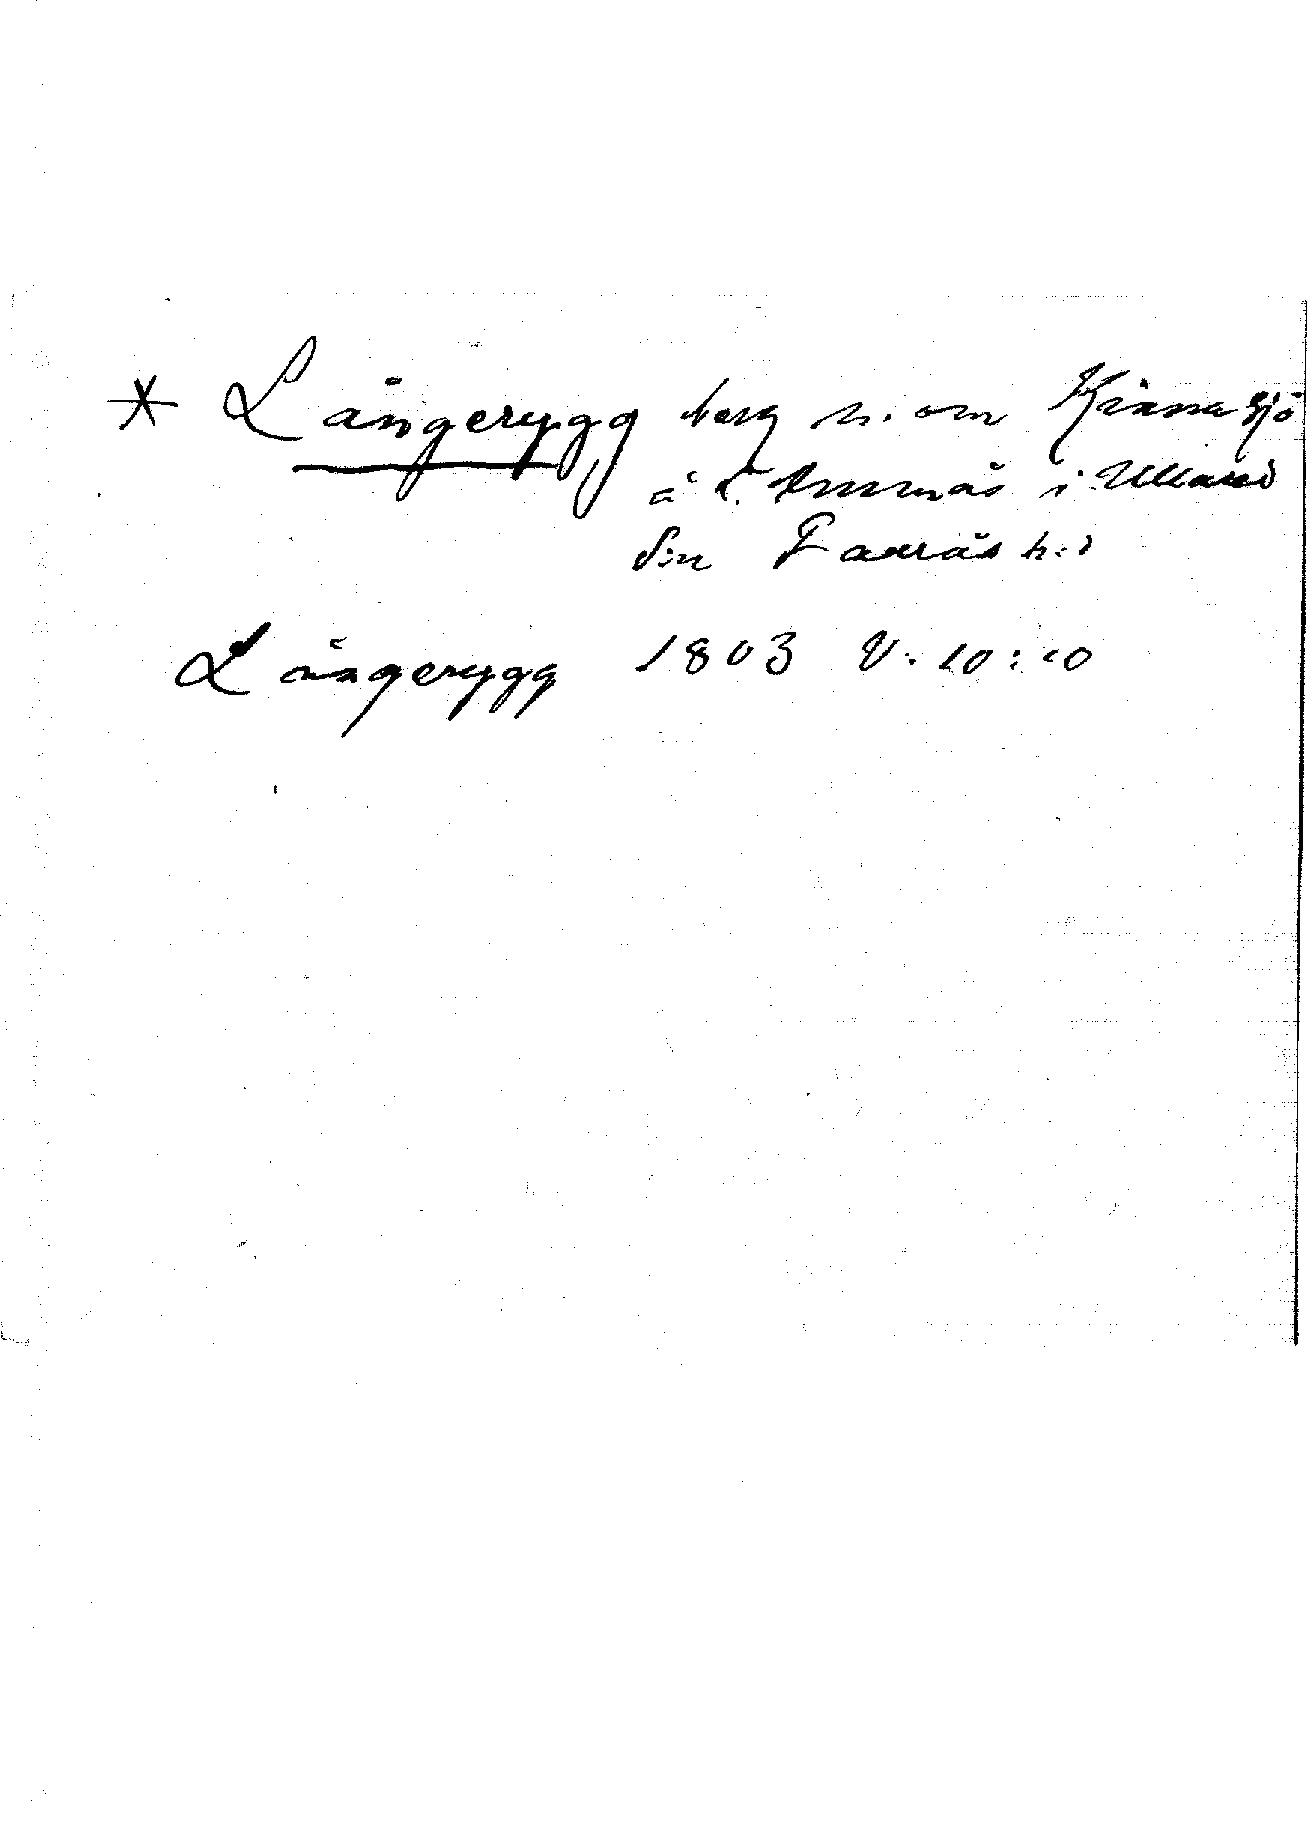 * Långerygg berg n. om Kinnasjö
å i Ullared
sn Faurås h:d
Långerygg 1803 V. 10:10